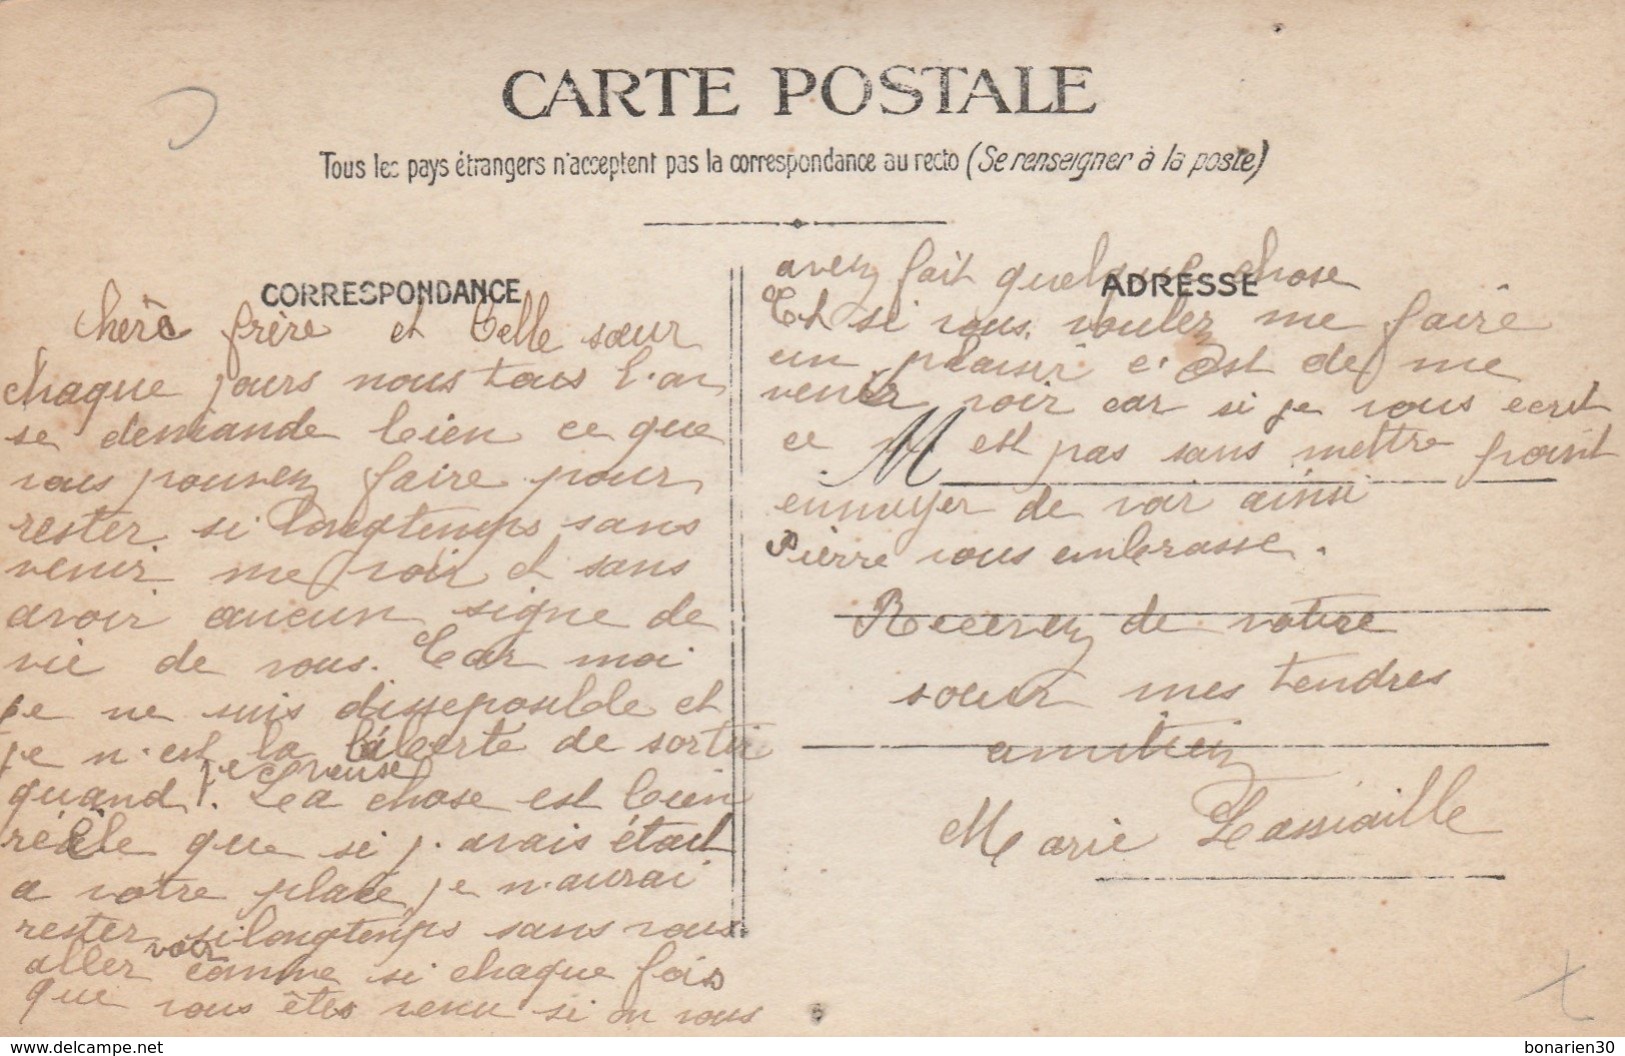 CARTE POSTALE
Tous les pays étrangers n'acceptent pas la correspondance au recto (Se renseigner à la poste)
CORRESPONDANCE
Chère frère et Belle sœur
chaque jours nous tous l'on
se demande bien ce que
vous pouvez faire pour
rester si longtemps sans
venir me voir et sans
avoir aucun signe de
vie de vous. Car moi
je ne suis disseposible et
je n'est la liberté de sortir
quand je veuse. La chose est bien
réele que si j'avais étail
a votre place je n'aurai
rester si longtemps sans vous
aller voir comme si chaque fois
que vous êtes venu si on vous
ADRESSE
avez fait quelque chose
Et si vous voulez me faire
un plaisir c'est de me
venir voir car si je vous ecrit
ce n'est pas sans mettre point
M
ennuyer de voir ainsi
Pierre vous embrasse.
Recevez de votre
soeur mes tendres
amitiez
Marie Lassaille
www.delcampe.net
bonarien30